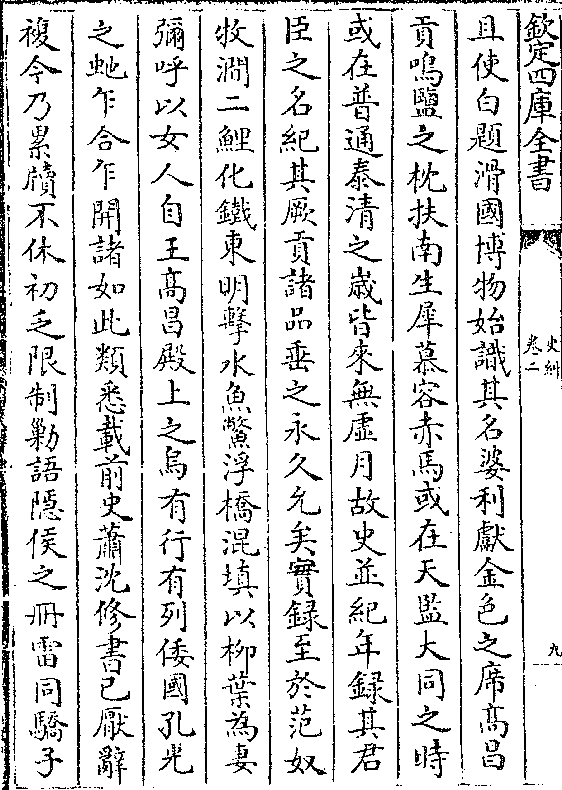 欽定四庫全書
史糾
卷二
九
且使白題滑國博物始識其名婆利獻金色之席髙昌
貢鳴鹽之枕扶南生犀慕容赤馬或在天監大同之時
或在普通泰清之歳皆來無虚月故史並紀年録其君
臣之名紀其厥貢諸品垂之永久允矣實録至於范奴
牧澗二鯉化鐵東明擊水魚鼈浮橋混填以栁葉為妻
彌呼以女人自王髙昌殿上之烏有行有列倭國孔光
之虵乍合乍開諸如此類悉載前史蕭沈修書已厭辭
複今乃累牘不休初乏限制勦語隠侯之冊雷同驕子